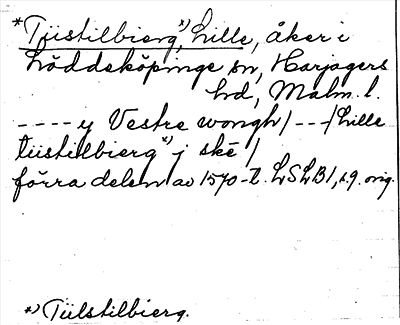 *Tiistilbierg*), Lille, åker i
Löddeköpinge sn, Harjagers
hd, Malm. l.
- - - - y Vestre wongh / - - - / Lille
tiistilbierg*) j ske /
förra delen av 1570-t. LSLB 1, s. 9. orig.
*) Tiilstilbierg.